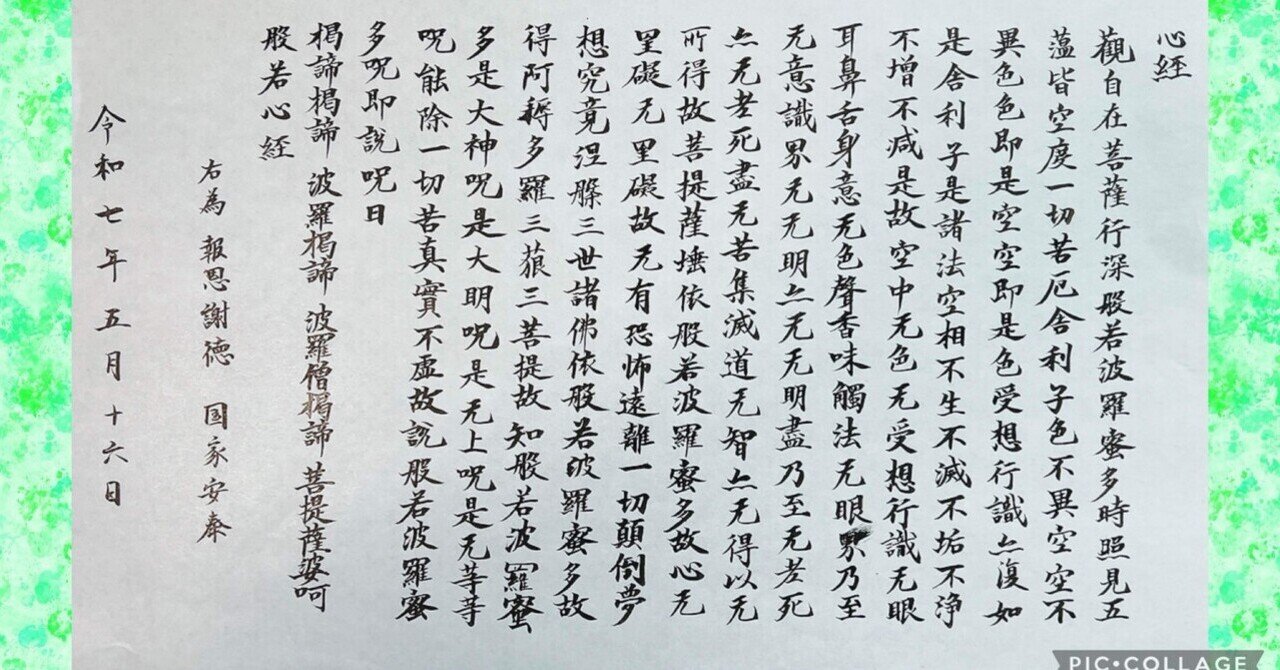 心経
觀自在菩薩行深般若波羅蜜多時照見五
薀皆空度一切苦厄舎利子色不異空空不
異色色即是空空即是色受想行識亦復如
是舎利子是諸法空相不生不滅不垢不浄
不增不减是故空中无色无受想行識无眼
耳鼻舌身意无色聲香味觸法无眼界乃至
无意識界无无明亦无无明盡乃至无老死
亦无老死盡无苦集滅道无智亦无得以无
所得故菩提薩埵依般若波羅蜜多故心无
罣礙无罣礙故无有恐怖遠離一切顛倒夢
想究竟涅槃三世諸佛依般若波羅蜜多故
得阿耨多羅三藐三菩提故知般若波羅蜜
多是大神呪是大明呪是无上呪是无等等
呪能除一切苦真實不虚故説般若波羅蜜
多呪即説呪曰
掲諦掲諦 波羅掲諦 波羅僧掲諦 菩提薩婆呵
般若心経
右為 報恩謝徳 国家安泰
令和七年五月十六日
PIC•COLLAGE